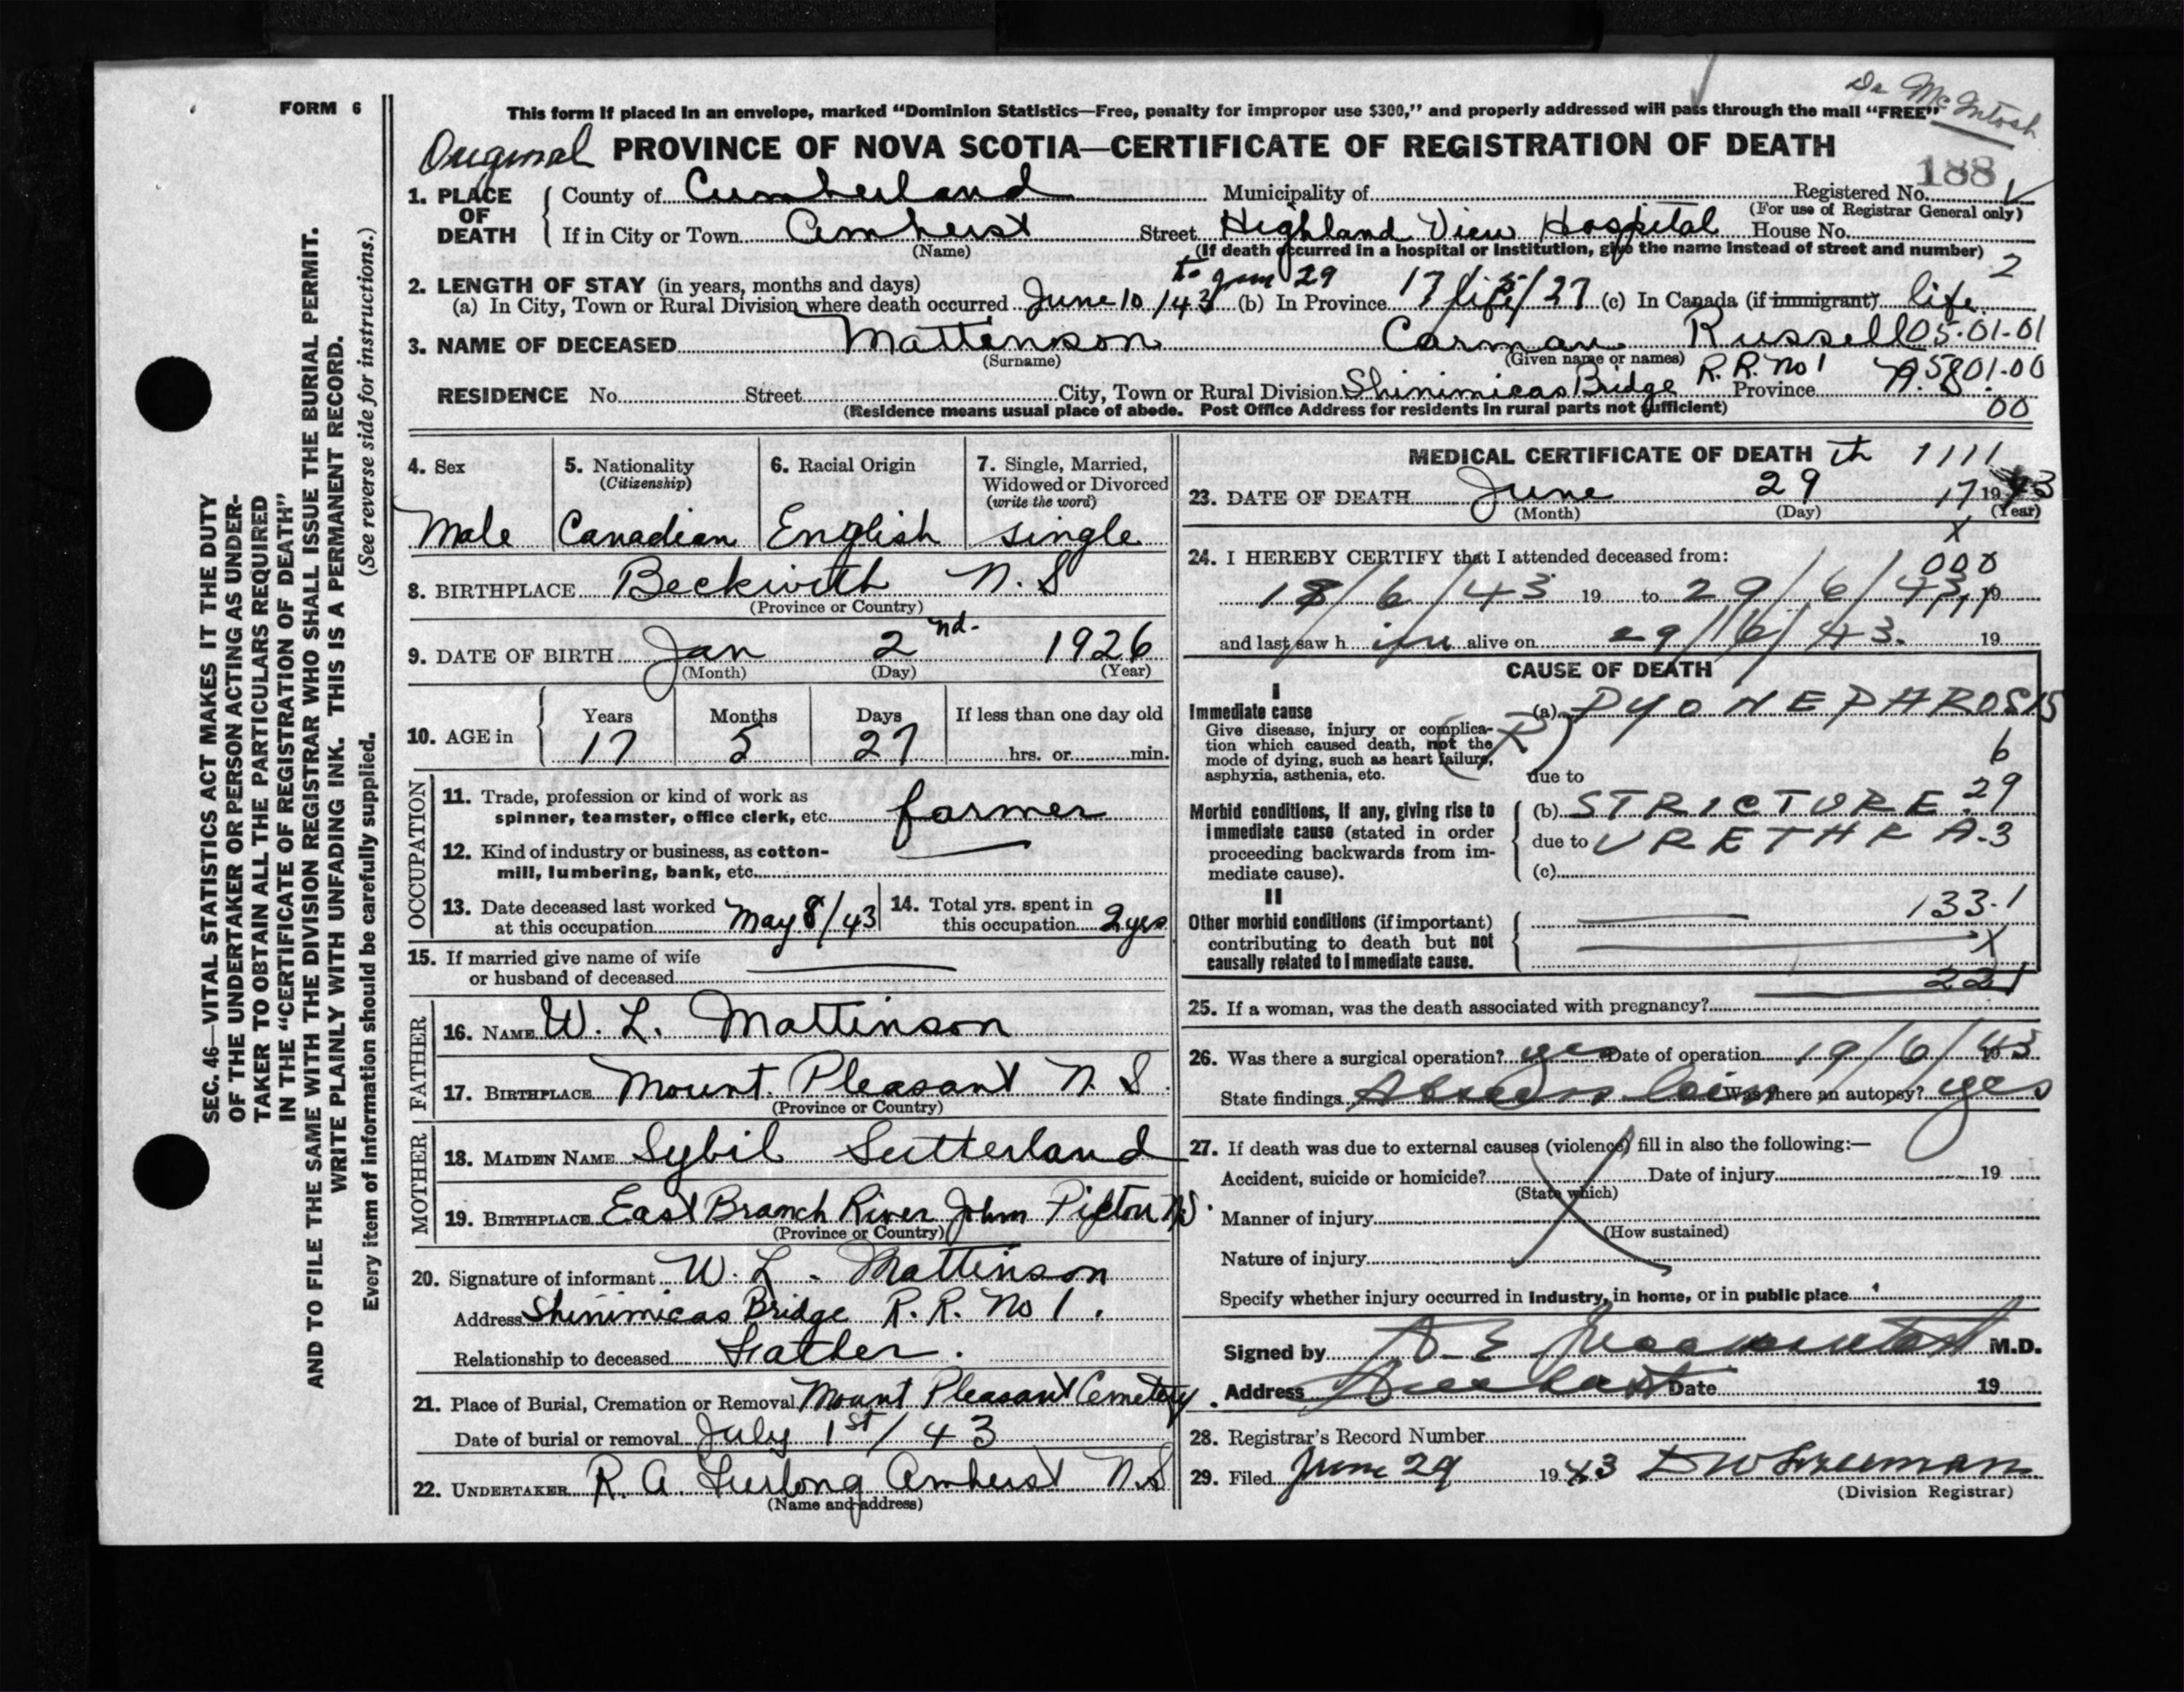 Dr McIntosh
FORM 6
This form if placed in an envelope, marked "Dominion Statistics—Free, penalty for improper use $300," and properly addressed will pass through the mail "FREE"
Original PROVINCE OF NOVA SCOTIA—CERTIFICATE OF REGISTRATION OF DEATH
188
1. PLACE OF DEATH County of Cumberland Municipality of Registered No.
(For use of Registrar General only)
If in City or Town Amherst Street Highland View Hospital House No.
(Name) (If death occurred in a hospital or institution, give the name instead of street and number) 2
to June 29
2. LENGTH OF STAY (in years, months and days)
(a) In City, Town or Rural Division where death occurred June 10/43 (b) In Province 17/5/27 life (c) In Canada (if immigrant) life
3. NAME OF DECEASED Mattinson Carman Russell 05-01-01
(Surname) (Given name or names)
RESIDENCE No. Street City, Town or Rural Division Shinimicas Bridge R.R. No 1 Province N.S. 5801-00
(Residence means usual place of abode. Post Office Address for residents in rural parts not sufficient) 00
4. Sex 5. Nationality (Citizenship) 6. Racial Origin 7. Single, Married, Widowed or Divorced (write the word)
Male Canadian English single
8. BIRTHPLACE Beckwith N.S
(Province or Country)
9. DATE OF BIRTH Jan 2nd 1926
(Month) (Day) (Year)
10. AGE in Years Months Days If less than one day old
17 5 27 hrs. or min.
OCCUPATION
11. Trade, profession or kind of work as spinner, teamster, office clerk, etc. farmer
12. Kind of industry or business, as cotton-mill, lumbering, bank, etc.
13. Date deceased last worked at this occupation May 8/43 14. Total yrs. spent in this occupation 2 yrs
15. If married give name of wife or husband of deceased
FATHER
16. NAME W. L. Mattinson
17. BIRTHPLACE Mount Pleasant N.S.
(Province or Country)
MOTHER
18. MAIDEN NAME Sybil Sutterland
19. BIRTHPLACE East Branch River John Pictou NS.
(Province or Country)
20. Signature of informant W. L. Mattinson
Address Shinimicas Bridge R.R. No 1.
Relationship to deceased Father.
21. Place of Burial, Cremation or Removal Mount Pleasant Cemetery.
Date of burial or removal July 1st/43
22. UNDERTAKER R. A. Furlong Amherst N.S
(Name and address)
MEDICAL CERTIFICATE OF DEATH th 1111
23. DATE OF DEATH June 29 17 1943
(Month) (Day) (Year)
X
24. I HEREBY CERTIFY that I attended deceased from:
000
18/6/43 19 to 29/6/43 19
and last saw him alive on 29/6/43. 19
CAUSE OF DEATH
I
Immediate cause (a) PYONEPHROSIS
Give disease, injury or complication which caused death, not the mode of dying, such as heart failure, asphyxia, asthenia, etc. (R)
6
due to
Morbid conditions, if any, giving rise to immediate cause (stated in order proceeding backwards from immediate cause).
(b) STRICTURE 29
due to URETHRA 3
(c)
II
Other morbid conditions (if important) contributing to death but not causally related to immediate cause.
133-1
X
221
25. If a woman, was the death associated with pregnancy?
26. Was there a surgical operation? yes Date of operation 19/6/43
State findings Abscess loin Was there an autopsy? yes
27. If death was due to external causes (violence) fill in also the following:—
Accident, suicide or homicide? Date of injury 19
(State which)
Manner of injury
(How sustained)
Nature of injury
Specify whether injury occurred in industry, in home, or in public place
Signed by M.D.
Address Amherst Date 19
28. Registrar's Record Number
29. Filed June 29 1943
(Division Registrar)
SEC. 46—VITAL STATISTICS ACT MAKES IT THE DUTY
OF THE UNDERTAKER OR PERSON ACTING AS UNDER-
TAKER TO OBTAIN ALL THE PARTICULARS REQUIRED
IN THE "CERTIFICATE OF REGISTRATION OF DEATH"
AND TO FILE THE SAME WITH THE DIVISION REGISTRAR WHO SHALL ISSUE THE BURIAL PERMIT.
WRITE PLAINLY WITH UNFADING INK. THIS IS A PERMANENT RECORD.
Every item of information should be carefully supplied. (See reverse side for instructions.)